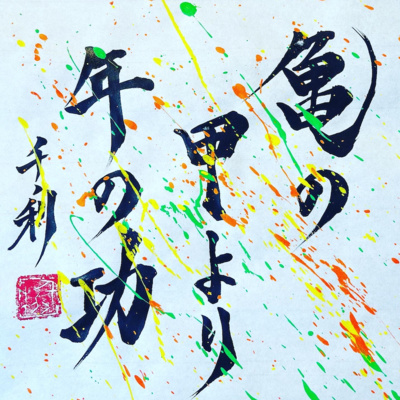 亀の
甲より
年の功